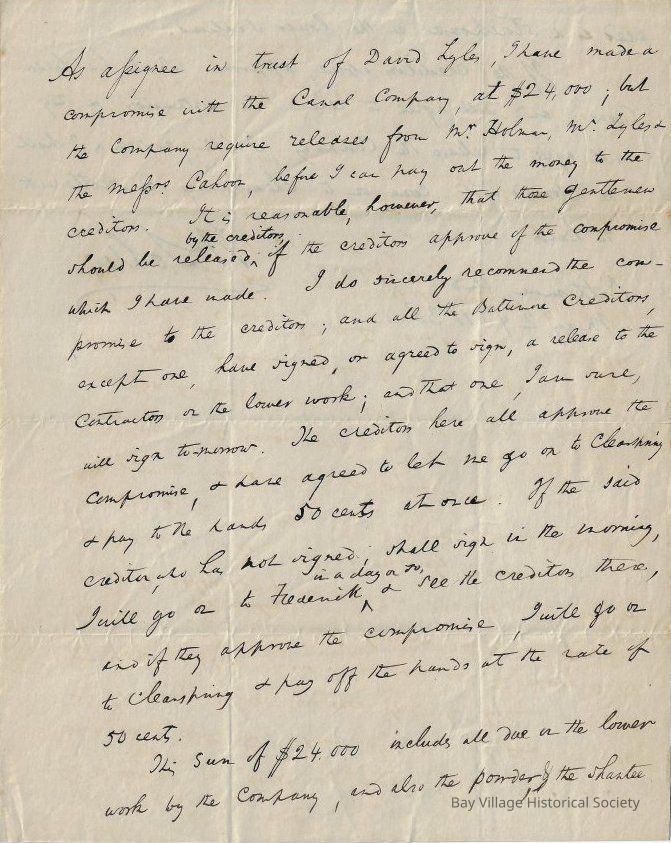 As assignee in trust of David Lyles, I have made a
compromise with the Canal Company, at $24,000; but
the Company require releases from Mr Holman, Mr. Lyles &
the Messrs. Cahoon, before I can pay out the money to the
creditors. It is reasonable, however, that those gentlemen
by the creditors,
should be released ^ if the creditors approve of the compromise
which I have made. I do sincerely recommend the com-
promise to the creditors; and all the Baltimore Creditors,
except one, have signed, or agreed to sign, a release to the
Contractors on the lower work; and that one, I am sure,
will sign to-morrow. The creditors here all approve the
compromise, & have agreed to let me go on to Clearspring
& pay to the hands 50 cents at once. If the said
creditor, who has not signed, shall sign in the morning,
in a day or so,
I will go on to Frederick ^ & see the creditors there,
and if they approve the compromise, I will go on
to Clearspring & pay off the hands at the rate of
50 cents.
This sum of $24.000 includes all due on the lower
work by the Company, and also the powder, & the shantee
Bay Village Historical Society